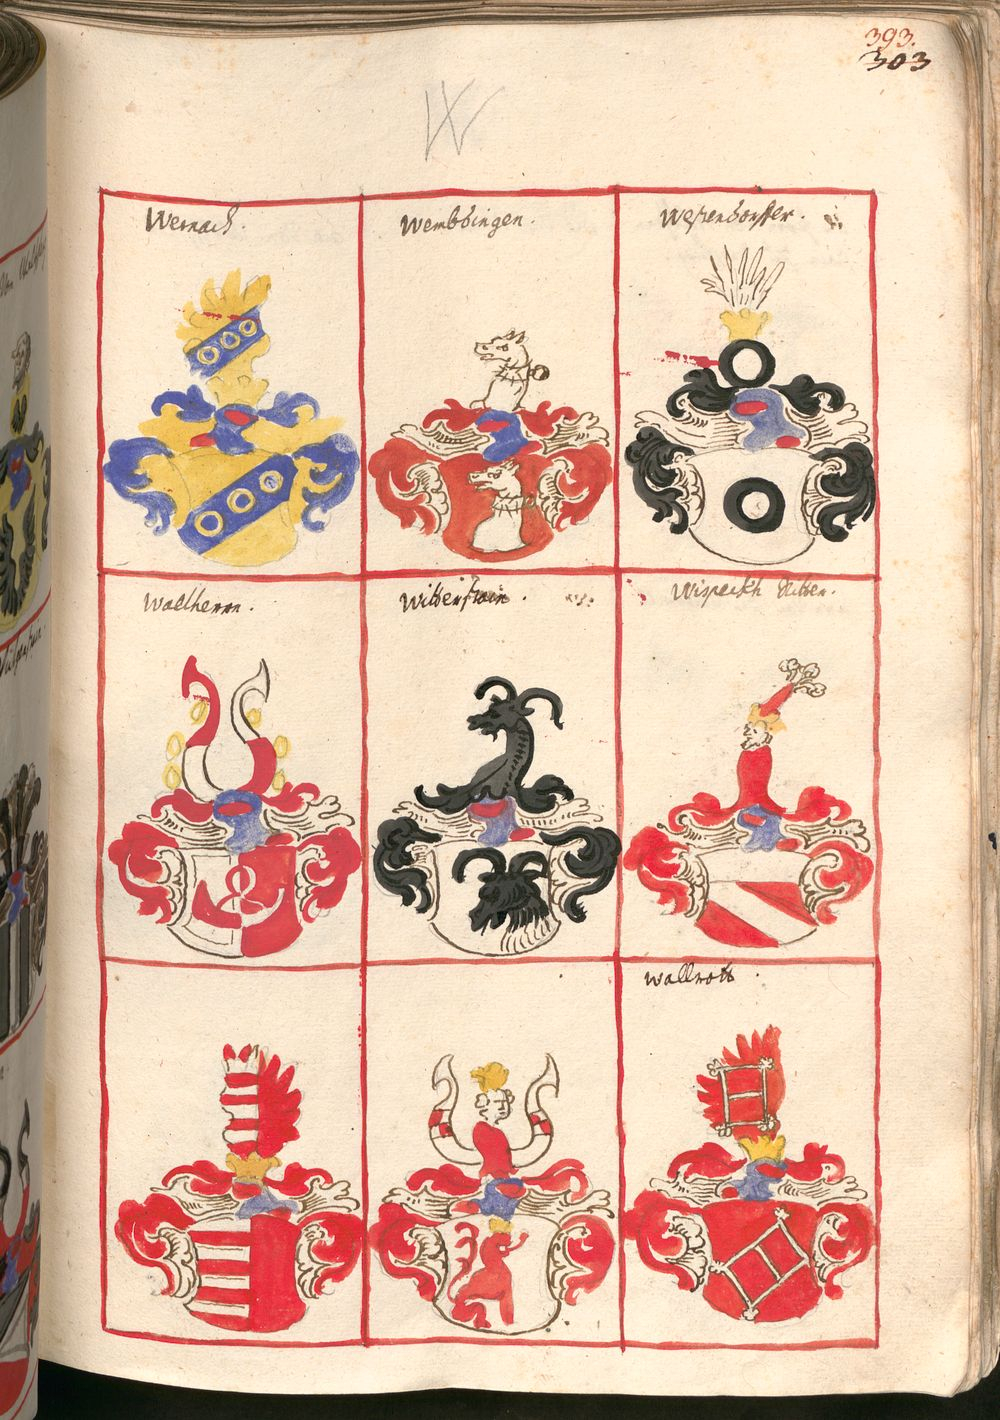 393.
303
W
Wernach.
Wembdingen.
Westendorffer.
Waelherrn.
Witterstain.
Wispeckh Ritter.
Wallrott.